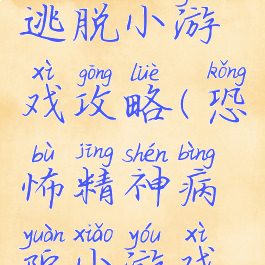 逃脱小游
xì gōng lüè kǒng
戏攻略(恐
bù jīng shén bìng
怖精神病
yuàn xiǎo yóu xì
院小游戏